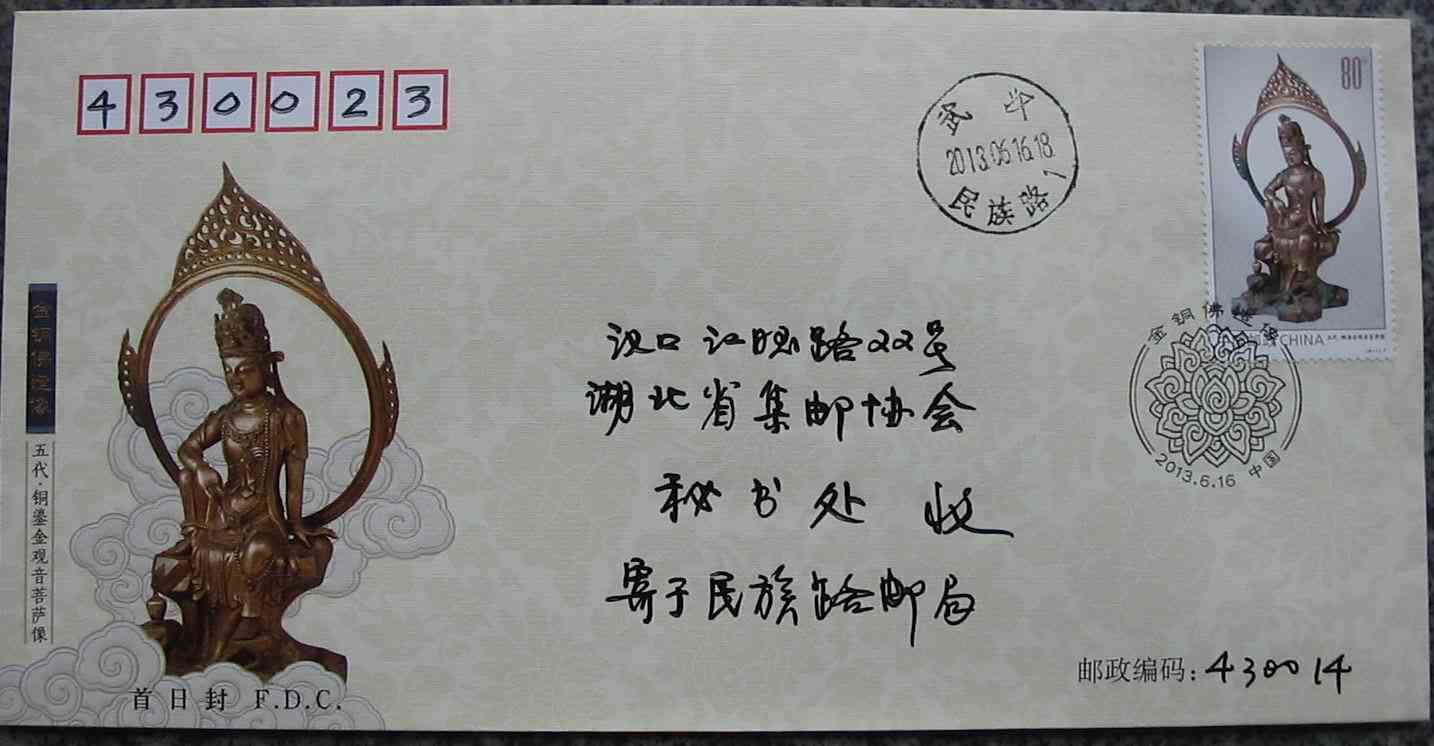 430023
武 汉
2013.06.16.18
民族路1
80分
CHINA
金铜佛造像
2013.6.16 中国
金铜佛造像
五代·铜鎏金观音菩萨像
汉口江旺路22号
湖北省集邮协会
秘书处 收
寄于民族路邮局
邮政编码:430014
首日封 F.D.C.